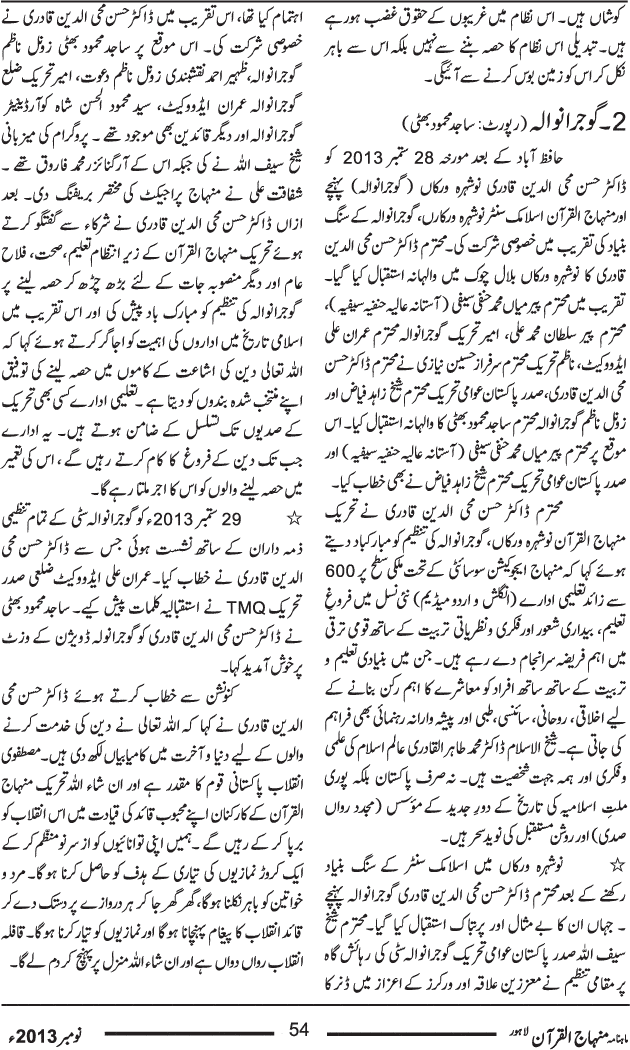 کوشاں ہیں۔ اس نظام میں غریبوں کے حقوق غضب ہو رہے
ہیں۔ تبدیلی اس نظام کا حصہ بننے سے نہیں بلکہ اس سے باہر
نکل کر اس کو زمین بوس کرنے سے آئیگی۔
2۔ گوجرانوالہ (رپورٹ: ساجد محمود بھٹی)
حافظ آباد کے بعد مورخہ 28 ستمبر 2013 کو
ڈاکٹر حسن محی الدین قادری نوشہرہ ورکاں (گوجرانوالہ) پہنچے
اور منہاج القرآن اسلامک سنٹر نوشہرہ ورکاراں، گوجرانوالہ کے سنگ
بنیاد کی تقریب میں خصوصی شرکت کی۔ محترم ڈاکٹر حسن محی الدین
قادری کا نوشہرہ ورکاں بلال چوک میں والہانہ استقبال کیا گیا۔
تقریب میں محترم پیر میاں محمد حنفی سیفی (آستانہ عالیہ حنفیہ سیفیہ)،
محترم پیر سلطان محمد علی، امیر تحریک گوجرانوالہ محترم عمران علی
ایڈووکیٹ، ناظم تحریک محترم سرفراز حسین نیازی نے محترم ڈاکٹر حسن
محی الدین قادری، صدر پاکستان عوامی تحریک محترم شیخ زاہد فیاض اور
زونل ناظم گوجرانوالہ محترم ساجد محمود بھٹی کا والہانہ استقبال کیا۔ اس
موقع پر محترم پیر میاں محمد حنفی سیفی (آستانہ عالیہ حنفیہ سیفیہ) اور
صدر پاکستان عوامی تحریک محترم شیخ زاہد فیاض نے بھی خطاب کیا۔
محترم ڈاکٹر حسن محی الدین قادری نے تحریک
منہاج القرآن نوشہرہ ورکاں، گوجرانوالہ کی تنظیم کو مبارکباد دیتے
ہوئے کہا کہ منہاج ایجوکیشن سوسائٹی کے تحت ملکی سطح پر 600
سے زائد تعلیمی ادارے (انگلش و اردو میڈیم) نئی نسل میں فروغِ
تعلیم، بیداری شعور اور فکری و نظریاتی تربیت کے ساتھ قومی ترقی
میں اہم فریضہ سرانجام دے رہے ہیں۔ جن میں بنیادی تعلیم و
تربیت کے ساتھ ساتھ افراد کو معاشرے کا اہم رکن بنانے کے
لیے اخلاقی، روحانی، سائنسی، طبی اور پیشہ وارانہ رہنمائی بھی فراہم
کی جاتی ہے۔ شیخ الاسلام ڈاکٹر محمد طاہر القادری عالم اسلام کی علمی
و فکری اور ہمہ جہت شخصیت ہیں۔ نہ صرف پاکستان بلکہ پوری
ملتِ اسلامیہ کی تاریخ کے دورِ جدید کے مؤسس (مجدد رواں
صدی) اور روشن مستقبل کی نوید سحر ہیں۔
☆ نوشہرہ ورکاں میں اسلامک سنٹر کے سنگ بنیاد
رکھنے کے بعد محترم ڈاکٹر حسن محی الدین قادری گوجرانوالہ پہنچے
۔ جہاں ان کا بے مثال اور پرتپاک استقبال کیا گیا۔ محترم شیخ
سیف اللہ صدر پاکستان عوامی تحریک گوجرانوالہ سٹی کی رہائش گاہ
پر مقامی تنظیم نے معززین علاقہ اور ورکرز کے اعزاز میں ڈنر کا
اہتمام کیا تھا، اس تقریب میں ڈاکٹر حسن محی الدین قادری نے
خصوصی شرکت کی۔ اس موقع پر ساجد محمود بھٹی زونل ناظم
گوجرانوالہ، ظہیر احمد نقشبندی زونل ناظم دعوت، امیر تحریک ضلع
گوجرانوالہ عمران ایڈووکیٹ، سید محمود الحسن شاہ کوآرڈینیٹر
گوجرانوالہ اور دیگر قائدین بھی موجود تھے۔ پروگرام کی میزبانی
شیخ سیف اللہ نے کی جبکہ اس کے آرگنائزر محمد فاروق تھے۔
شفاقت علی نے منہاج پراجیکٹ کی مختصر بریفنگ دی۔ بعد
ازاں ڈاکٹر حسن محی الدین قادری نے شرکاء سے گفتگو کرتے
ہوئے تحریک منہاج القرآن کے زیر انتظام تعلیم، صحت، فلاح
عام اور دیگر منصوبہ جات کے لئے بڑھ چڑھ کر حصہ لینے پر
گوجرانوالہ کی تنظیم کو مبارک باد پیش کی اور اس تقریب میں
اسلامی تاریخ میں اداروں کی اہمیت کو اجاگر کرتے ہوئے کہا کہ
اللہ تعالیٰ دین کی اشاعت کے کاموں میں حصہ لینے کی توفیق
اپنے منتخب شدہ بندوں کو دیتا ہے۔ تعلیمی ادارے کسی بھی تحریک
کے صدیوں تک تسلسل کے ضامن ہوتے ہیں۔ یہ ادارے
جب تک دین کے فروغ کا کام کرتے رہیں گے، اس کی تعمیر
میں حصہ لینے والوں کو اس کا اجر ملتا رہے گا۔
☆ 29 ستمبر 2013ء کو گوجرانوالہ سٹی کے تمام تنظیمی
ذمہ داران کے ساتھ نشست ہوئی جس سے ڈاکٹر حسن محی
الدین قادری نے خطاب کیا۔ عمران علی ایڈووکیٹ ضلعی صدر
تحریک TMQ نے استقبالیہ کلمات پیش کیے۔ ساجد محمود بھٹی
نے ڈاکٹر حسن محی الدین قادری کو گوجرانوالہ ڈویژن کے وزٹ
پر خوش آمدید کہا۔
کنونشن سے خطاب کرتے ہوئے ڈاکٹر حسن محی
الدین قادری نے کہا کہ اللہ تعالیٰ نے دین کی خدمت کرنے
والوں کے لیے دنیا و آخرت میں کامیابیاں لکھ دی ہیں۔ مصطفوی
انقلاب پاکستانی قوم کا مقدر ہے اور ان شاء اللہ تحریک منہاج
القرآن کے کارکنان اپنے محبوب قائد کی قیادت میں اس انقلاب کو
برپا کر کے رہیں گے۔ ہمیں اپنی توانائیوں کو از سر نو منظم کر کے
ایک کروڑ نمازیوں کی تیاری کے ہدف کو حاصل کرنا ہوگا۔ مرد و
خواتین کو باہر نکلنا ہوگا، گھر گھر جا کر ہر دروازے پر دستک دے کر
قائد انقلاب کا پیغام پہنچانا ہوگا اور نمازیوں کو تیار کرنا ہوگا۔ قافلہ
انقلاب رواں دواں ہے اور ان شاء اللہ منزل پر پہنچ کر دم لے گا۔
ماہنامہ منہاج القرآن لاہور 54 نومبر 2013ء